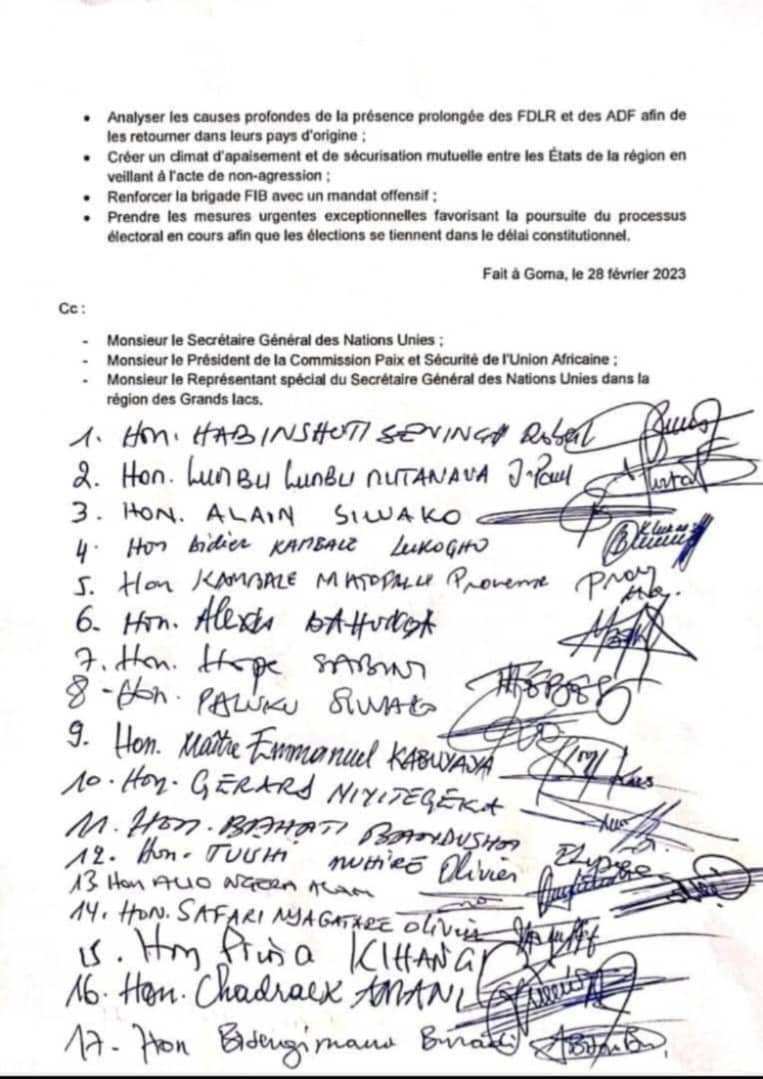 • Analyser les causes profondes de la présence prolongée des FDLR et des ADF afin de
les retourner dans leurs pays d'origine ;
• Créer un climat d'apaisement et de sécurisation mutuelle entre les États de la région en
veillant à l'acte de non-agression ;
• Renforcer la brigade FIB avec un mandat offensif ;
• Prendre les mesures urgentes exceptionnelles favorisant la poursuite du processus
électoral en cours afin que les élections se tiennent dans le délai constitutionnel.
Fait à Goma, le 28 février 2023
Cc :
- Monsieur le Secrétaire Général des Nations Unies ;
- Monsieur le Président de la Commission Paix et Sécurité de l'Union Africaine ;
- Monsieur le Représentant spécial du Secrétaire Général des Nations Unies dans la
région des Grands lacs.
1. Hon. HABINSHUTI SENINGA Robert
2. Hon. LUMBU LUMBU MUTANAVA J-Paul
3. HON. ALAIN SIWAKO
4. Hon Didier KAMBALE LUKOGHO
5. Hon KAMBALE
6. Hon. Alexis BAHUNGA
7. Hon. Hope SABINI
8 - Hon. PALUKU SIWAKO
9. Hon. Maître Emmanuel KABUYAYA
10. Hon. GERARD NIYITEGEKA
11. Hon. BAHATI
12. Hon. TUSHI MUHIRE Olivier
13 Hon
14. HON. SAFARI NYAGATARE Olivier
15. Hon Prisca KIHANGI
16. Hon. Chadrack AMANI
17. Hon Bisengimana